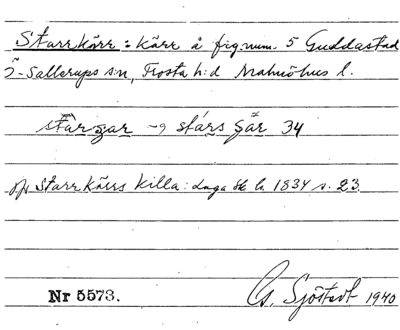 Starrkärr: Kärr å fig.num. 5 Guddastad
Ö-Sallerups s:n, Frosta h:d Malmöhus l.
34
Starr Kärrs Källa: Laga sk h 1834 s. 23
Nr 5573.
G. Sjöstedt 1940